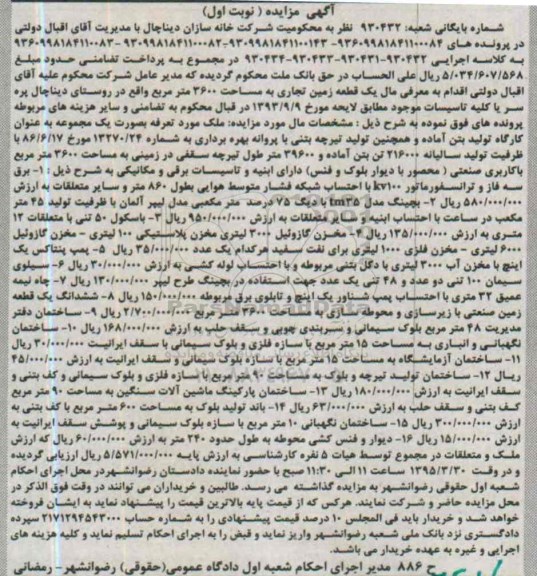 آگهی مزایده ( نوبت اول)
شماره بایگانی شعبه: ۹۳۰۴۳۲ نظر به محکومیت شرکت خانه سازان دیناچال با مدیریت آقای اقبال دولتی
در پرونده های ۹۳۶۰۹۹۸۱۸۴۱۱۰۰۰۸۴-۹۳۰۹۹۸۱۸۴۱۱۰۰۱۴۳-۹۳۰۹۹۸۱۸۴۱۱۰۰۰۸۲-۹۳۶۰۹۹۸۱۸۴۱۱۰۰۰۸۳
به کلاسه اجرایی ۹۳۰۴۳۲-۹۳۰۴۳۱-۹۳۰۴۳۳-۹۳۰۴۳۴ در مجموع به پرداخت تضامنی حدود مبلغ
۵/۰۳۴/۶۰۷/۵۶۸ ریال علی الحساب در حق بانک ملت محکوم گردیده که مدیر عامل شرکت محکوم علیه آقای
اقبال دولتی اقدام به معرفی مال یک قطعه زمین تجاری به مساحت ۳۶۰۰ متر مربع واقع در روستای دیناچال پره
سر با کلیه تاسیسات موجود مطابق لایحه مورخ ۱۳۹۳/۹/۹ در قبال محکوم به تضامنی و سایر هزینه های مربوطه
پرونده های فوق نموده به شرح ذیل : مشخصات مال مورد مزایده: ملک مورد تعرفه بصورت یک مجموعه به عنوان
کارگاه تولید بتن آماده و همچنین تولید تیرچه بتنی با پروانه بهره برداری به شماره ۱۳۲۷۰/۲۴ مورخ ۸۶/۶/۱۷ با
ظرفیت تولید سالیانه ۲۱۶۰۰۰ تن بتن آماده و ۳۹۶۰۰ متر طول تیرچه سقفی در زمینی به مساحت ۳۶۰۰ متر مربع
باکاربری صنعتی ( محصور با دیوار بلوک و فنس) دارای ابنیه و تاسیسات برقی و مکانیکی به شرح ذیل : ۱- برق
سه فاز و ترانسفورماتور kv۱۰۰ با احتساب شبکه فشار متوسط هوایی بطول ۸۶۰ متر و سایر متعلقات به ارزش
۵۸۰/۰۰۰/۰۰۰ ریال ۲- بچینگ مدل tm۳۵ با دیگ ۷۵ درصد متر مکعبی مدل لیپر آلمان با ظرفیت تولید ۴۵ متر
مکعب در ساعت با احتساب ابنیه و سایر متعلقات به ارزش ۹۵۰/۰۰۰/۰۰۰ ریال ۳- باسکول ۵۰ تنی با متعلقات ۱۲
متری به ارزش ۱۳۵/۰۰۰/۰۰۰ ریال ۴- مخزن گازوئیل ۳۰۰۰ لیتری مخزن پلاستیکی ۱۰۰ لیتری - مخزن گازوئیل
۶۰۰۰ لیتری - مخزن فلزی ۱۰۰۰ لیتری برای نفت سفید هرکدام یک عدد ۳۵/۰۰۰/۰۰۰ ریال ۵- پمپ پنتاکس یک
اینچ با مخزن آب ۳۰۰۰ لیتری با دگل بتنی مربوطه و با احتساب لوله کشی به ارزش ۳۰/۰۰۰/۰۰۰ ریال ۶-سیلوی
سیمان ۱۰۰ تنی دو عدد و ۴۸ تنی یک عدد جهت استفاده در بچینگ طرح لیپر ۱۳۰/۰۰۰/۰۰۰ ریال ۷- چاه نیمه
عمیق ۲۲ متری با احتساب پمپ شناور یک اینچ و تابلوی برق مربوطه ۱۵۰/۰۰۰/۰۰۰ ریال ۸- ششدانگ یک قطعه
زمین صنعتی با زیرسازی و محوطه سازی با مساحت ۳۶۰۰ متر مربع ۲/۷۰۰/۰۰۰/۰۰۰ ریال ۹- ساختمان دفتر
مدیریت ۴۸ متر مربع بلوک سیمانی و سربندی چوبی و سقف حلب به ارزش ۱۶۸/۰۰۰/۰۰۰ ریال ۱۰- ساختمان
نگهبانی و انباری به مساحت ۱۵ متر مربع با سازه فلزی و بلوک سیمانی با سقف ایرانیت ۳۰/۰۰۰/۰۰۰ ریال
۱۱- ساختمان آزمایشگاه به مساحت ۱۵ متر مربع با سازه بلوک سیمانی و سقف ایرانیت به ارزش ۴۵/۰۰۰/۰۰۰
ریال ۱۲- ساختمان تولید تیرچه و بلوک به مساحت ۹۰ متر مربع با سازه فلزی و بلوک سیمانی و کف بتنی و
سقف ایرانیت به ارزش ۱۸۰/۰۰۰/۰۰۰ ریال ۱۳- ساختمان پارکینگ ماشین آلات سنگین به مساحت ۹۰ متر مربع
کف بتنی و سقف حلب به ارزش ۶۳/۰۰۰/۰۰۰ ریال ۱۴- باند تولید بلوک به مساحت ۶۰۰ متر مربع با کف بتنی به
ارزش ۳۰۰/۰۰۰/۰۰۰ ریال ۱۵- ساختمان نگهبانی ۱۰ متر مربع با سازه بلوک سیمانی و پوشش سقف ایرانیت به
ارزش ۱۵/۰۰۰/۰۰۰ ریال ۱۶- دیوار و فنس کشی محوطه به طول حدود ۲۴۰ متر به ارزش ۶۰/۰۰۰/۰۰۰ ریال که ارزش
ملک و متعلقات در مجموع توسط هیات ۵ نفره کارشناسی به ارزش پایه ۵/۵۷۱/۰۰۰/۰۰۰ ریال ارزیابی گردیده
و در وقت ۱۳۹۵/۳/۳۰ ساعت ۱۱ الی ۱۱:۳۰ صبح با حضور نماینده دادستان رضوانشهردر محل اجرای احکام
شعبه اول حقوقی رضوانشهر به مزایده گذاشته می رسد. طالبین و خریداران می توانند در وقت فوق الذکر در
محل مزایده حاضر و شرکت نمایند. هرکس که از قیمت پایه بالاترین قیمت را پیشنهاد نماید به ایشان فروخته
خواهد شد و خریدار باید فی المجلس ۱۰ درصد قیمت پیشنهادی را به شماره حساب ۲۱۷۱۲۹۴۵۴۳۰۰۰ سپرده
دادگستری نزد بانک ملی شعبه رضوانشهر واریز نماید و قبض را به اجرای احکام تسلیم نماید و کلیه هزینه های
اجرایی و غیره به عهده خریدار می باشد.
ح ۸۸۶ مدیر اجرای احکام شعبه اول دادگاه عمومی(حقوقی) رضوانشهر- رمضانی